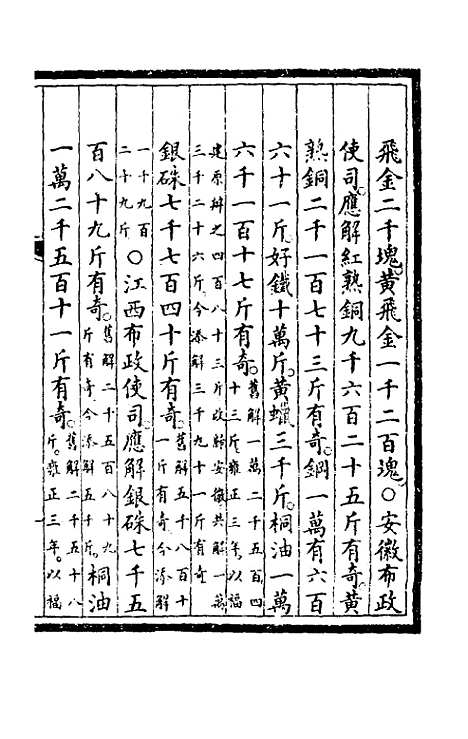 飛金二千塊。黃飛金一千二百塊。○安徽布政
使司。應解紅熟銅九千六百二十五斤有奇。黃
熟銅二千一百七十三斤有奇。鋼一萬有六百
六十一斤。好鐵十萬斤。黃蠟三千斤。桐油一萬
六千一百十七斤有奇。舊解一萬二千五百四十三斤。雍正三年。以福
建原辦之四百八十三斤改歸安徽。共解一萬三千二十六斤。今添解三千九十一斤有奇
銀硃七千七百四十斤有奇。舊解五千八百十一斤有奇今添解
一千九百二十九斤○江西布政使司。應解銀硃七千五
百八十九斤有奇。舊解二千五百八十九斤有奇今添解五千斤。桐油
一萬二千五百十一斤有奇。舊解二千五十八斤。雍正三年。以福